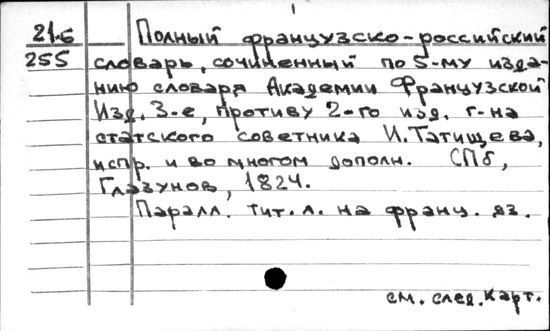 216 Полный французско-российский
255 словарь, сочиненный по 5-му изда-
нию словаря Академии Французской
Изд. 3-е, противу 2-го изд. г-на
статского советника И. Татищева,
испр. и во многом дополн. СПб,
Глазунов, 1824.
Паралл. тит. л. на франц. яз.
см. след. карт.